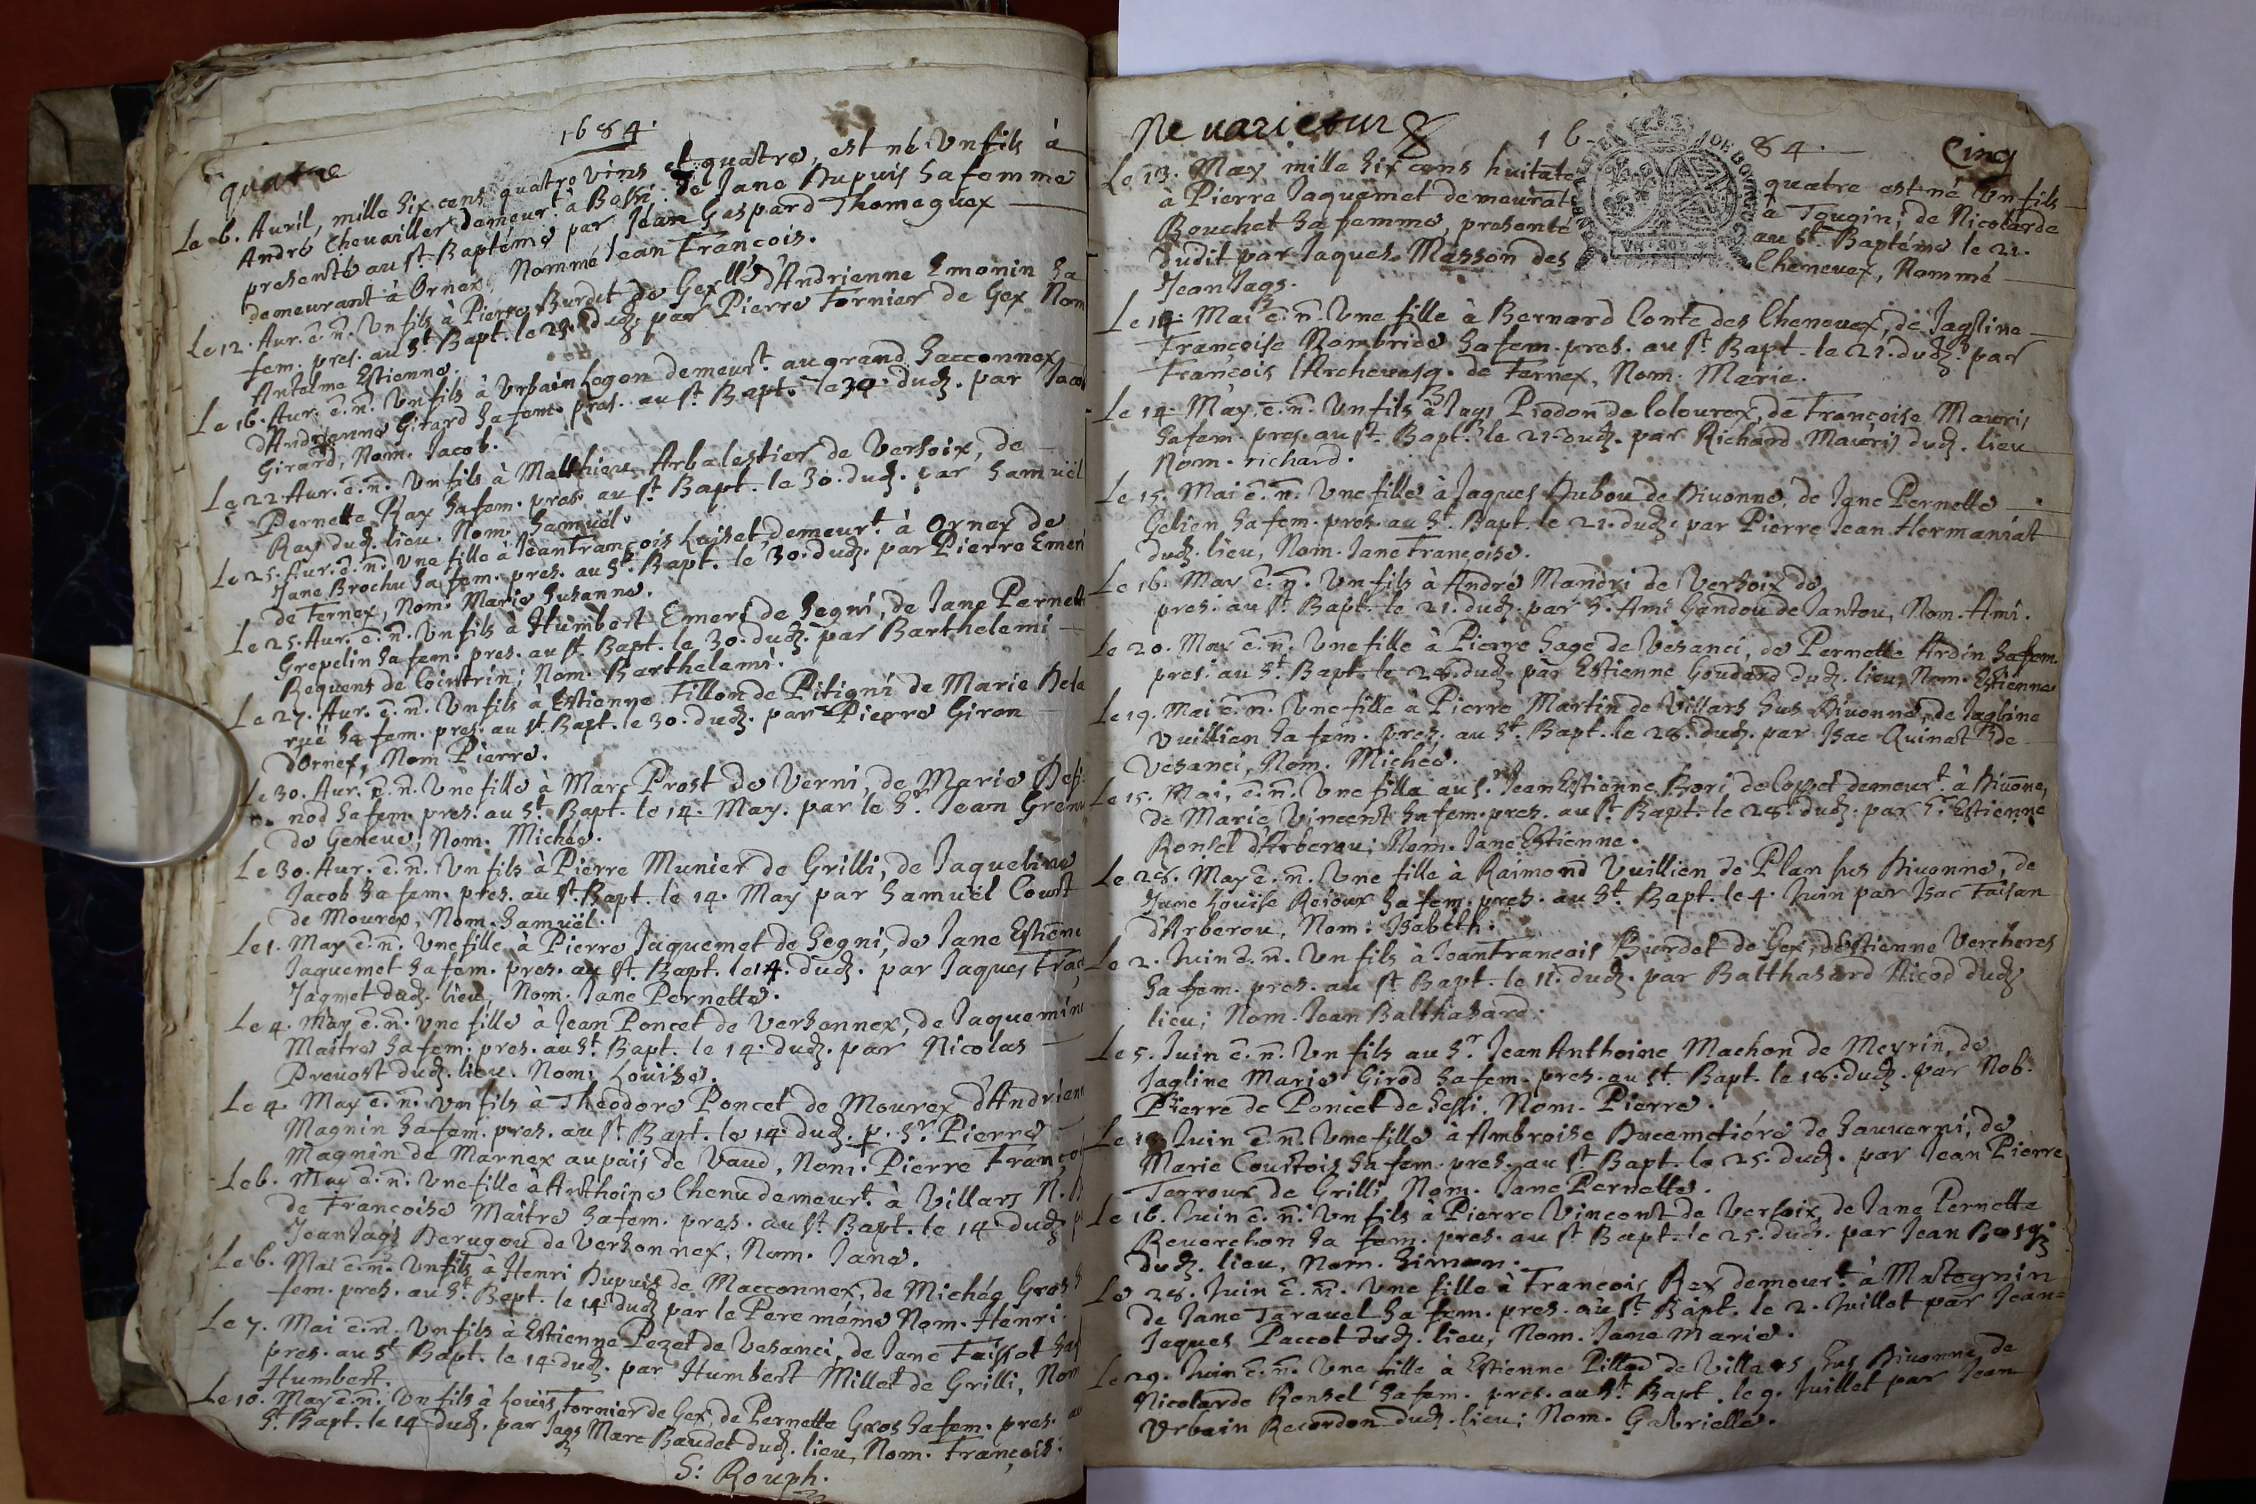 1684.
quatre
Le 6. Auril, mille Six cens quatre vins et quatre, est né Vn fils à
André Cheuailler demeurt. à Bossi. de Jane Dupuis Sa femme
presenté au St. Baptéme par Jean Gaspard Thomeguex
demeurant à Ornex, Nommé Jean François.
Le 12. Aur. e. n. Vn fils à Pierre Burdet de Gex & d'Andrienne Emonin Sa
fem. pres. au St. Bapt. le 23. dud. par Pierre Fornier de Gex Nom
Antelme Estienne.
Le 16. Aur. e. n. Vn fils à Vrbain Legon demeurt. au grand Sacconnex
d'Andrianne Girard Sa fem. pres. au St. Bapt. le 30. dud. par Jacob
Girard, Nom. Jacob.
Le 22. Aur. e. n. Vn fils à Matthieu Arbalestier de Versoix, de
Pernette Ray Sa fem. pres. au St. Bapt. le 30. dud. par Samuël
Ray dud. lieu. Nom. Samuël.
Le 25. Aur. e. n. Vne fille à Jeanfrançois Luiset demeurt. à Ornex de
Jane Brochu Sa fem. pres. au St. Bapt. le 30. dud. par Pierre Emeri
de Fernex, Nom. Marie Susanne.
Le 25. Aur. e. n. Vn fils à Humbert Emeri de Segni, de Jane Pernette
Grepelin Sa fem. pres. au St. Bapt. le 30. dud. par Barthelemi
Requens de Cointrin; Nom. Barthelemi.
Le 27. Aur. e. n. Vn fils à Estienne Fillon de Pitigni de Marie Dela
rüe Sa fem. pres. au St. Bapt. le 30. dud. par Pierre Giron
d'Ornex, Nom Pierre.
Le 30. Aur. e. n. Vne fille à Marc Prost de Verni, de Marie Des
nod Sa fem. pres. au St. Bapt. le 14. May. par le Sr. Jean Greni
de Geneue; Nom. Michée.
Le 30. Aur. e. n. Vn fils à Pierre Munier de Grilli, de Jaqueline
Jacob Sa fem. pres. au St. Bapt. le 14. May par Samuël Court
de Mourex, Nom. Samuël.
Le 1. May e. n. Vne fille à Pierre Jaquemet de Segni, de Jane Estienne
Jaquemet Sa fem. pres. au St. Bapt. le 14. dud. par Jaques Fra
Jaqmet dud. lieu, Nom. Jane Pernette.
Le 4. May e. n. Vne fille à Jean Poncet de Versonnex, de Jaquemine
Maitre Sa fem. pres. au St. Bapt. le 14. dud. par Nicolas
Preuost dud. lieu. Nom. Louise.
Le 4. May e. n. Vn fils à Theodore Poncet de Mourex d'Andrien
Magnin Sa fem. pres. au St. Bapt. le 14. dud. p. Sr. Pierre
Magnin de Marnex au païs de Vaud, Nom. Pierre Franço
Le 6. May e. n. Vne fille à Anthoine Chenu demeurt. à Villars
de Françoise Maitre Sa fem. pres. au St. Bapt. le 14 dud
Jean Jaqs Derugou de Versonnex, Nom. Jane.
Le 6. Mai e. n. Vn fils à Henri Dupuis de Macconnex, de Michée Gros
fem. pres. au St. Bapt. le 14 dud par le Pere méme Nom. Henri.
Le 7. Mai e. n. Vn fils à Estienne Pezet de Vesanci, de Jane Faissot
pres. au St. Bapt. le 14. dud. par Humbert Millet de Grilli, Nom
Humbert.
Le 10. May e. n. Vn fils à Louis Fornier de Gex, de Pernette Gros Sa fem. pres. au
St. Bapt. le 14 dud. par Jaqs Marc Baudet dud. lieu, Nom. François.
S: Rouph.
Ne varietur
1684.
Cinq
Le 13. May mille Six cens huitate quatre est né Vn fils
à Pierre Jaquemet demeurat à Tougin, de Nicolarde
Bouchet Sa femme, presenté au St. Baptéme le 21.
dudit par Jaques Masson des Cheneuex, Nommé
Jean Jaqs.
Le 14. Mai e. n. Vne fille à Bernard Conte des Cheneuex, de Jaqline
Françoise Rombride Sa fem. pres. au St. Bapt. le 21. dud. par
François l'Archeuesq. de Fernex, Nom. Marie.
Le 14. May. e. n. Vn fils à Jaqs Piodon de Colourex, de Françoise Mauris
Sa fem. pres. au St. Bapt. le 21. dud. par Richard Mauris dud. lieu
Nom. richard.
Le 15. Mai e. n. Vne fille à Jaques Dubou de Diuonne, de Jane Pernette
Gelien Sa fem. pres. au St. Bapt. le 21. dud. par Pierre Jean Hermaniat
dud. lieu, Nom. Jane Françoise.
Le 16. May e. n. Vn fils à André Mandri de Versoix de
pres. au St. Bapt. le 21. dud. par S. Ami Gandou de Jantou, Nom. Ami.
Le 20. May e. n. Vne fille à Pierre Sage de Vesanci, de Pernette Ardin Sa fem.
pres. au St. Bapt. le 28. dud. par Estienne Goudard dud. lieu, Nom. Estienne
Le 19. Mai e. n. Vne fille à Pierre Martin de Villars Sus Diuonne, de Jaqline
Vuillien Sa fem. pres. au St. Bapt. le 28. dud. par Isac Quinat de
Vesanci, Nom. Michée.
Le 15. Mai, e. n. Vne fille au Sr. Jean Estienne Bori de Coppet demeurt. à Diuone,
de Marie Vincent Sa fem. pres. au St. Bapt. le 28. dud. par Sr. Estienne
Ronsel d'Arberou; Nom. Jane Estienne.
Le 28. May e. n. Vne fille à Raimond Vuillien de Plan sus Diuonne, de
Jane Louise Reioux Sa fem. pres. au St. Bapt. le 4. Juin par Isac Faisan
d'Arberou, Nom. Isabeth.
Le 2. Juin e. n. Vn fils à Jeanfrançois Burdet de Gex, d'Estienne Vercheres
Sa fem. pres. au St. Bapt. le 11. dud. par Balthasard Nicod dud
lieu; Nom. Jean Balthasard.
Le 5. Juin e. n. Vn fils au Sr. Jean Anthoine Machon de Meyrin, de
Jaqline Marie Girod Sa fem. pres. au St. Bapt. le 18. dud. par Nob.
Pierre de Poncet de Sessi. Nom. Pierre.
Le 13. Juin e. n. Vne fille à Ambroise Ducemetiére de Sauuerni, de
Marie Courtois Sa fem. pres. au St. Bapt. le 25. dud. par Jean Pierre
Terroux de Grilli Nom. Jane Pernette.
Le 16. Juin e. n. Vn fils à Pierre Vincent de Versoix, de Jane Pernette
Reuerchon Sa fem. pres. au St Bapt. le 25. dud. par Jean Bosq
dud. lieu, Nom. Simon.
Le 28. Juin e. n. Vne fille à François Rex demeurt. à Mategnin
de Jane Tarauel Sa fem. pres. au St. Bapt. le 2. Juillet par Jean-
Jaques Paccot dud. lieu, Nom. Jane Marie.
Le 29. Juin e. n. Vne fille à Estienne Pillod de Villars Sus Diuonne, de
Nicolarde Ronsel Sa fem. pres. au St. Bapt. le 9. Juillet par Jean
Vrbain Recordon dud. lieu; Nom. Gabrielle.